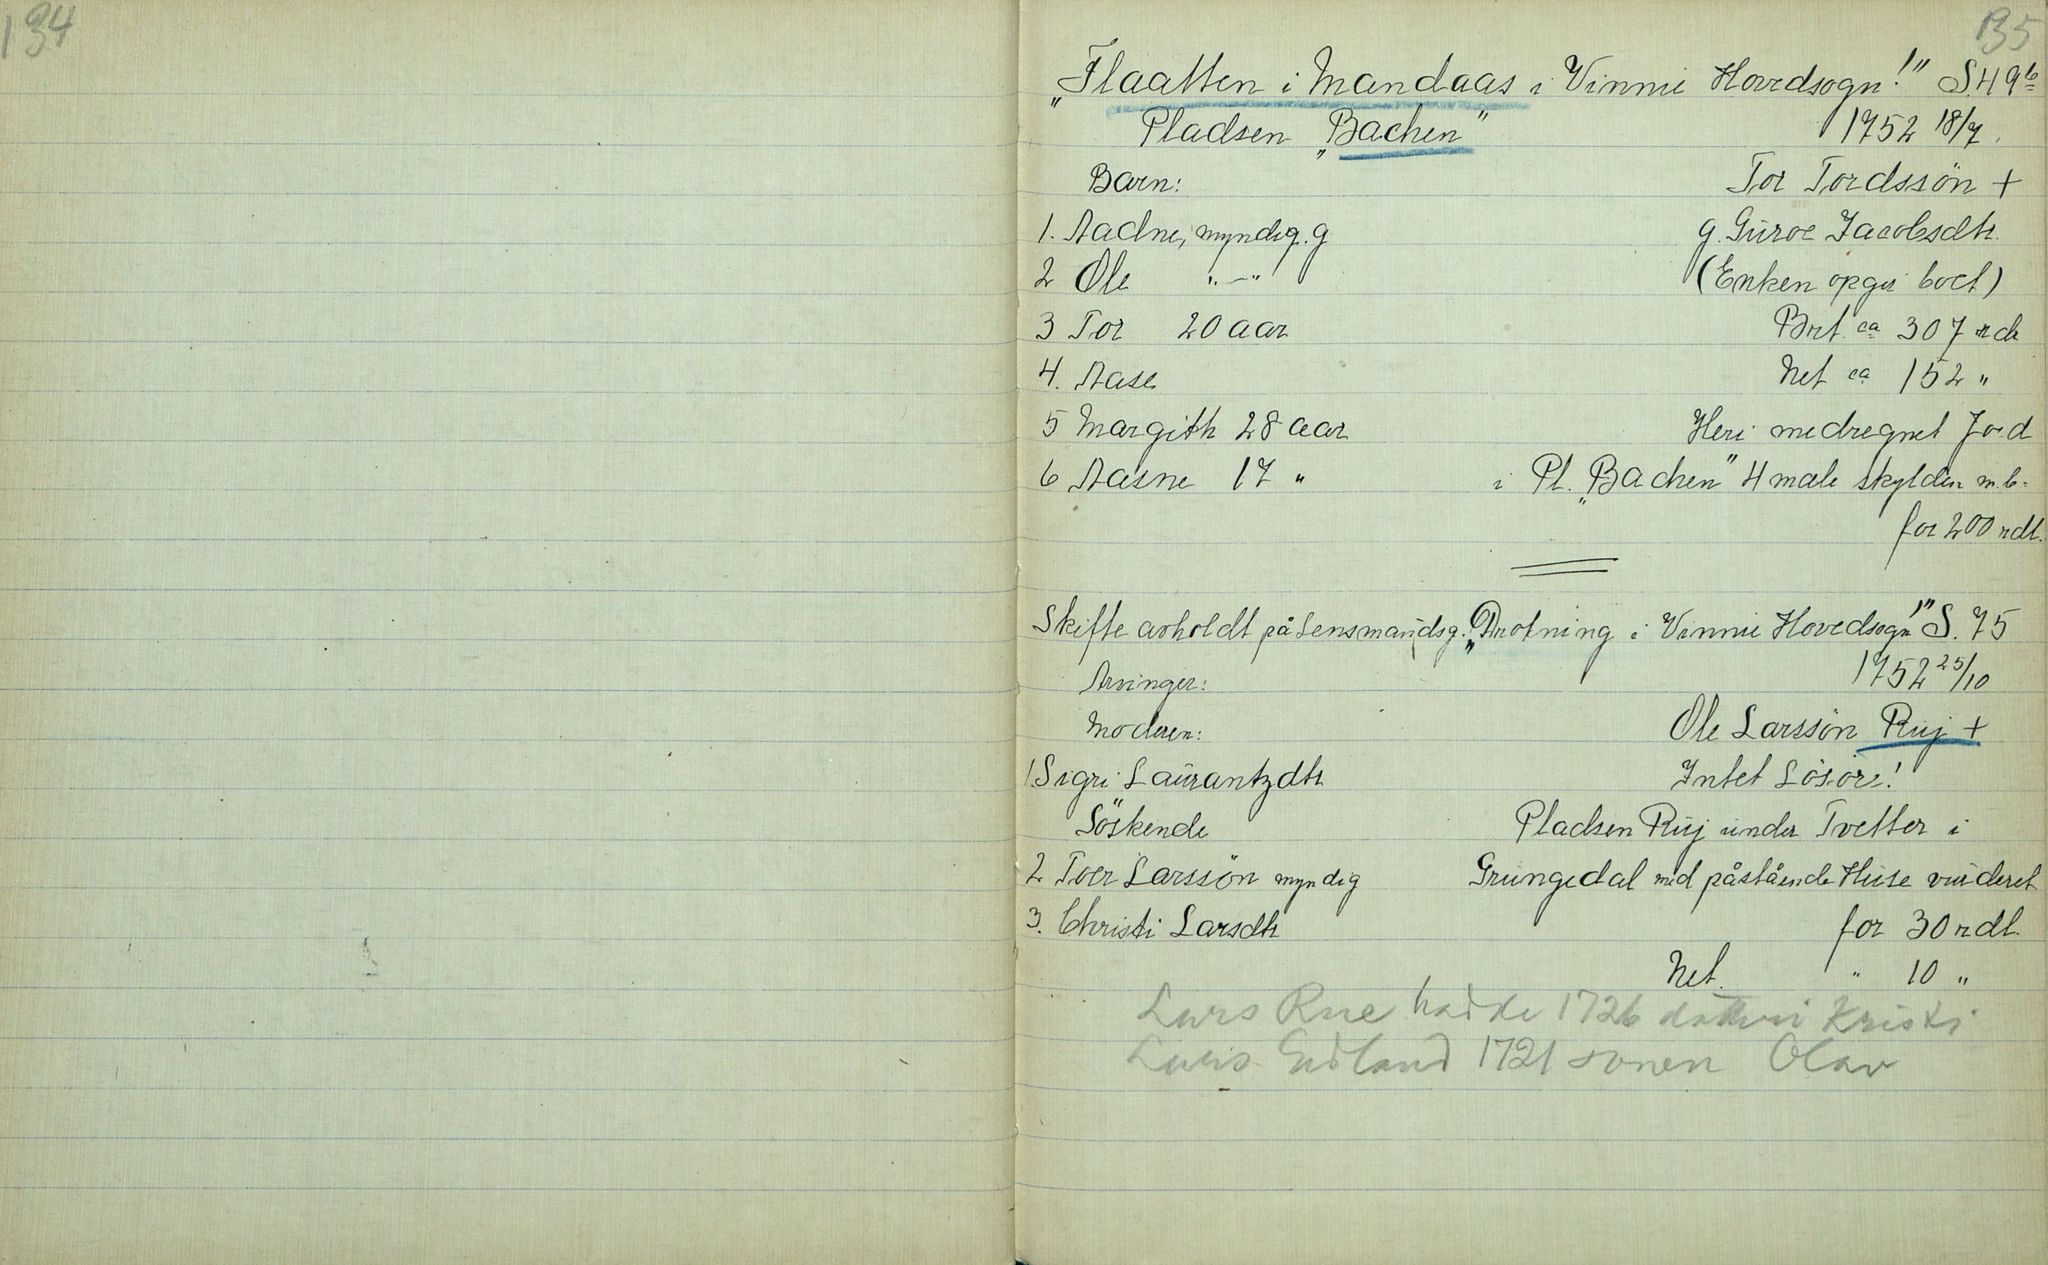 134
135
„Flaatten i Mandaas i Vinnie Hovedsogn!" S. 49 b
Pladsen „Bachen" 1752 18/7.
Barn: Tor Tordssön +
1. Aadne, myndig. g g. Güroe Jacobsdtr.
2 Ole "—" (Enken opger boet)
3 Tor 20 aar Brt. ca 307 rdl
4. Aase Net ca 152 "
5 Margith 28 aar Heri medregnet Jord
6 Aasne 17 " i Pl. „Bachen" 4 mæle skylden m.b.
for 200 rdl.
Skifte avholdt på Lensmandsg. „Drotning i Vinnie Hovedsogn!" S. 75
Arvinger: 1752 25/10
Moderen: Ole Larssön Rüj +
1. Sigri Laürantzdtr Intet Lösöre!
Söskende Pladsen Rüj ünder Tvetter i
2 Toer Larssön myndig Grüngedal med påstående Hüse vurderet
3. Christi Larsdtr for 30 rdl.
Net. " 10 "
Lars Rue hadde 1726 datteri Kristi
Lars Edland 1721 sonen Olav